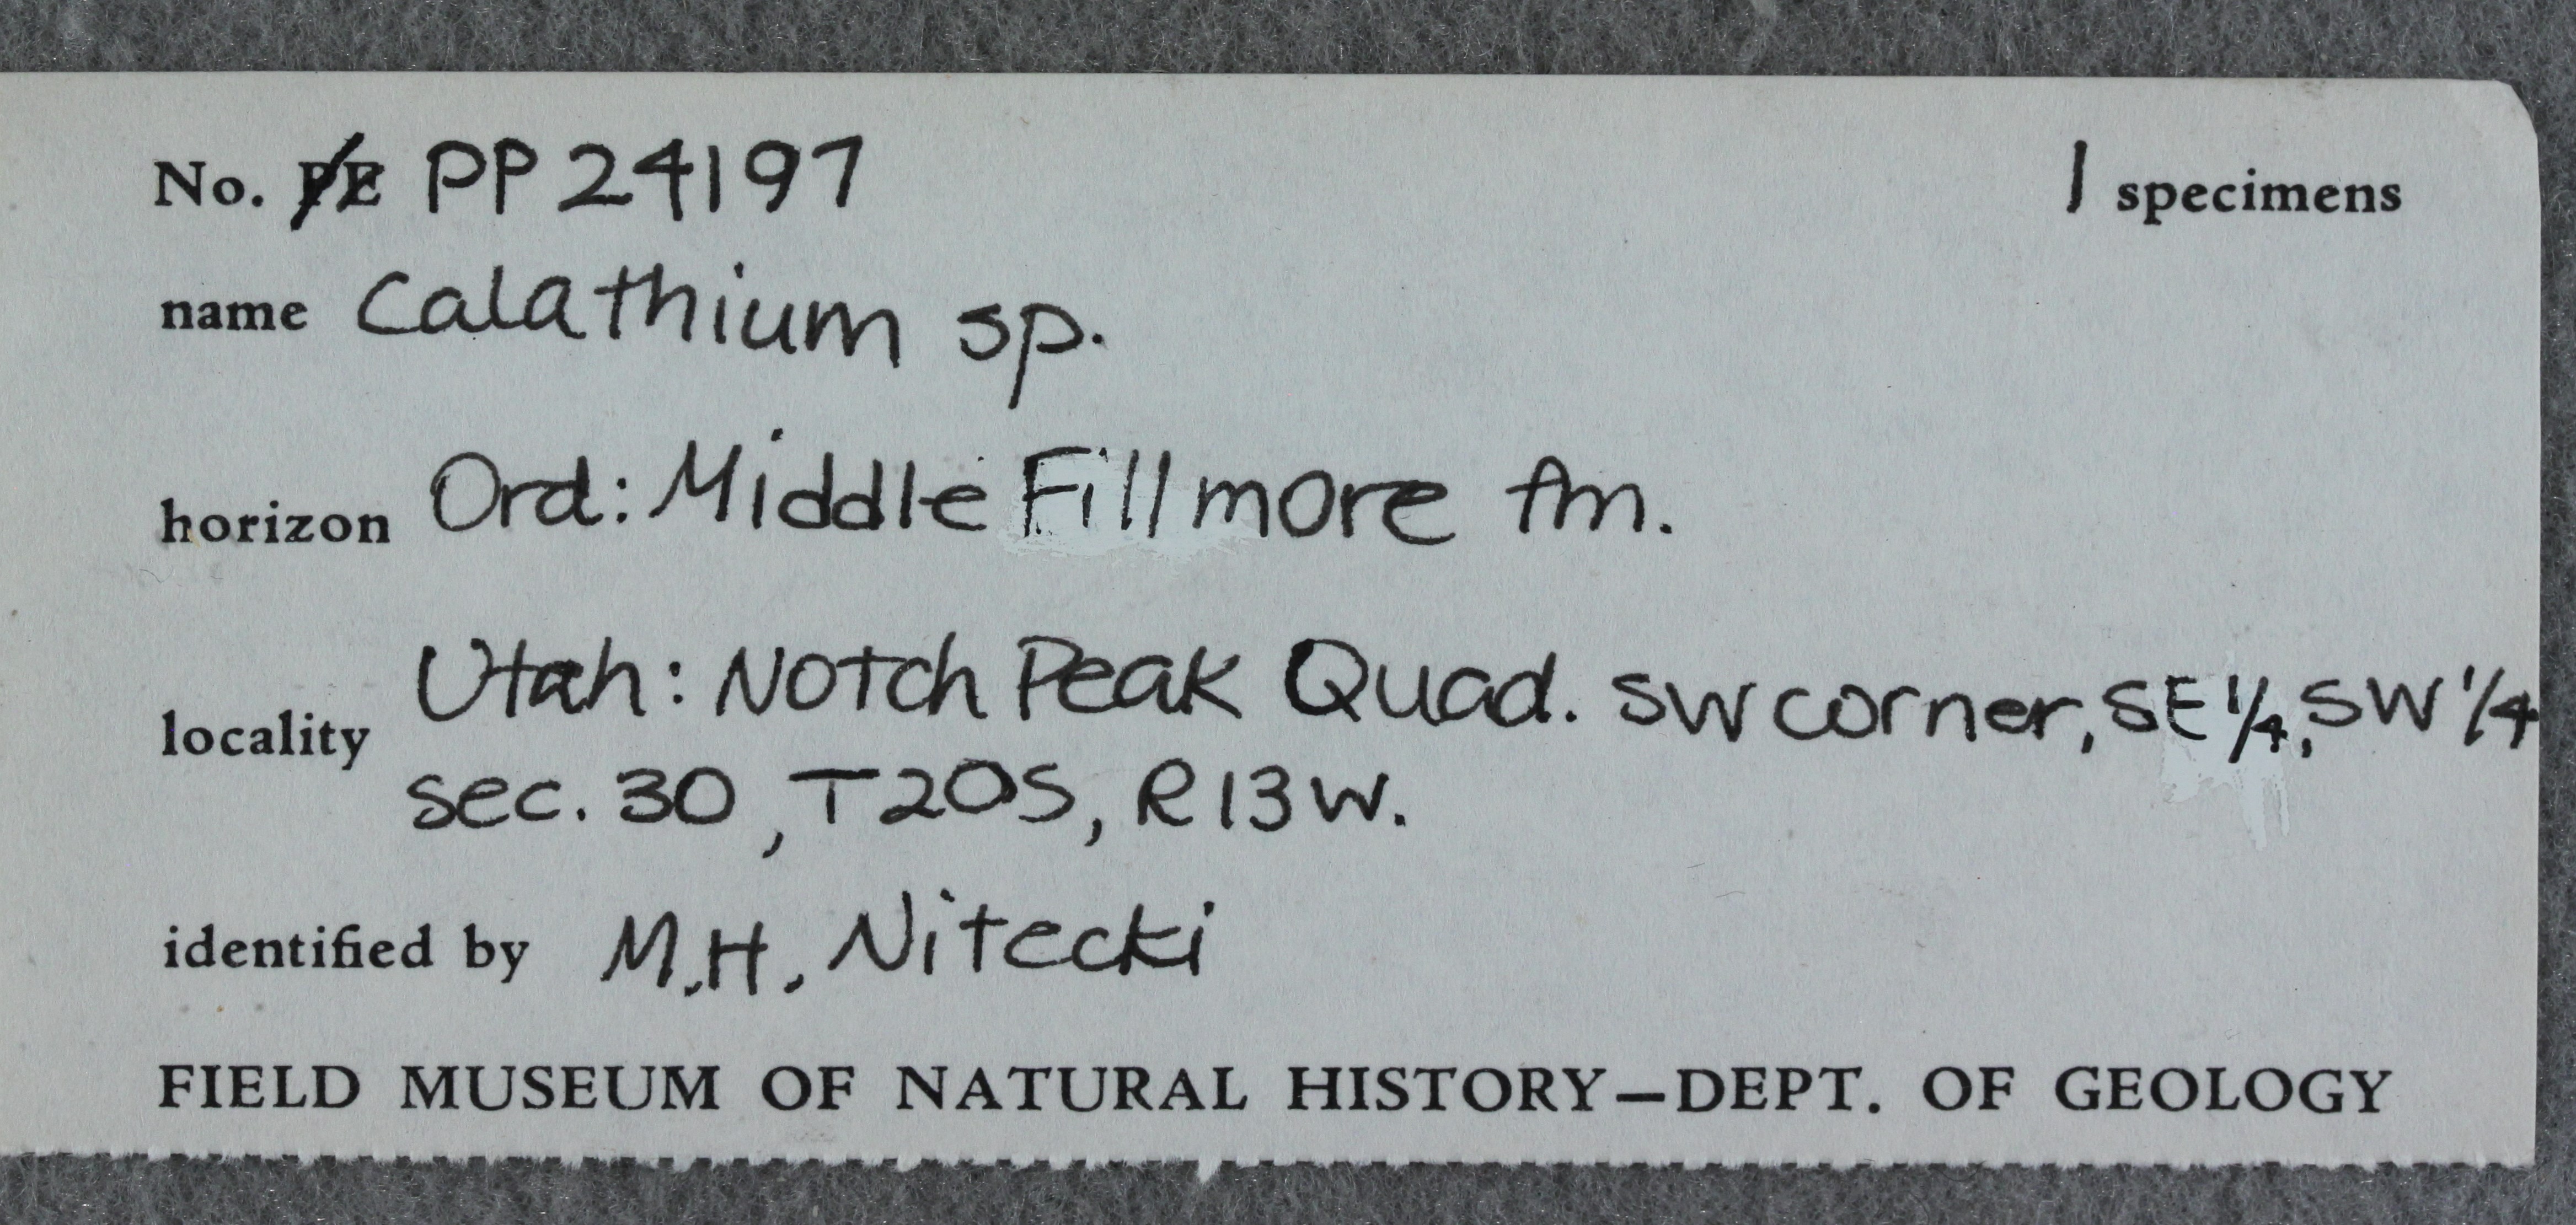 No. PE PP 24197 1 specimens
name Calathium sp.
horizon Ord: Middle Fillmore fm.
locality Utah: Notch Peak Quad. SW corner, SE 1/4, SW 1/4
sec. 30, T20S, R13W.
identified by M.H. Nitecki
FIELD MUSEUM OF NATURAL HISTORY—DEPT. OF GEOLOGY